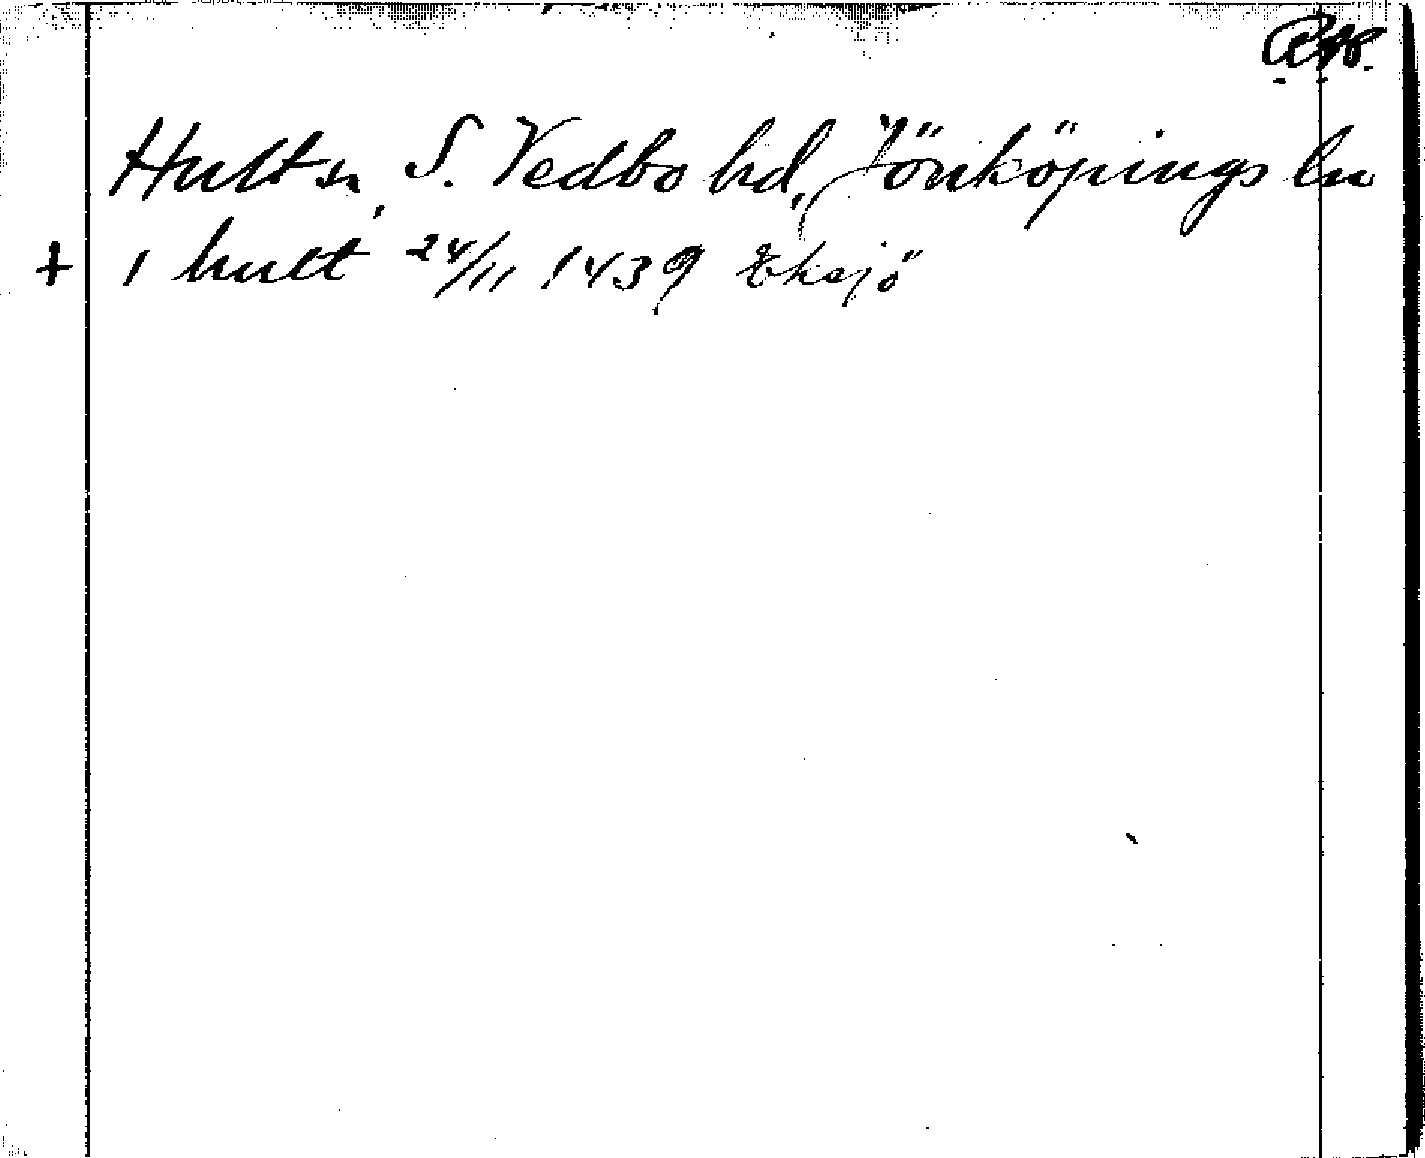 Hults sn, S. Vedbo hd, Jönköpings ln
+ i hult 24/11 1439 Eksjö